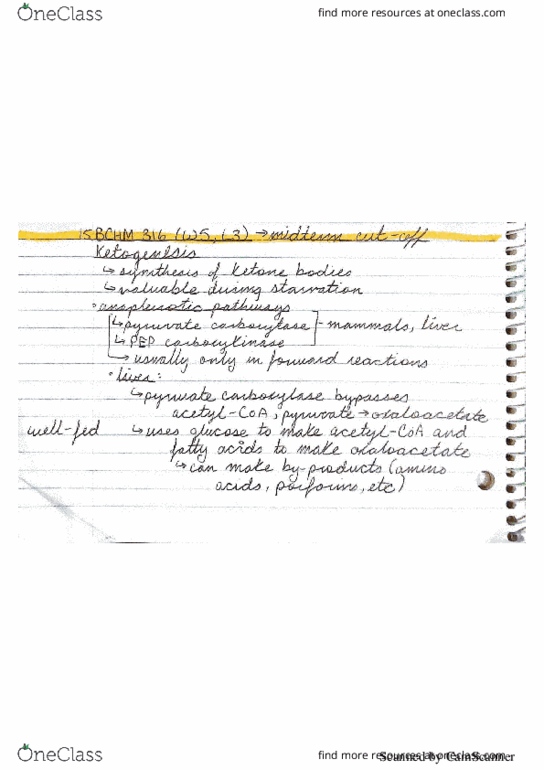 OneClass
find more resources at oneclass.com
15 BCHM 316 (W5, L3) → midterm cut-off
Ketogenesis
↳ synthesis of ketone bodies
↳ valuable during starvation
• anaplerotic pathways
↳ pyruvate carboxylase - mammals, liver
↳ PEP carboxykinase
→ usually only in forward reactions
• liver:
↳ pyruvate carboxylase bypasses
acetyl-CoA, pyruvate → oxaloacetate
well-fed ↳ uses glucose to make acetyl-CoA and
fatty acids to make oxaloacetate
↳ can make by-products (amino
acids, porforins, etc)
OneClass
find more resources at oneclass.com
Scanned by CamScanner